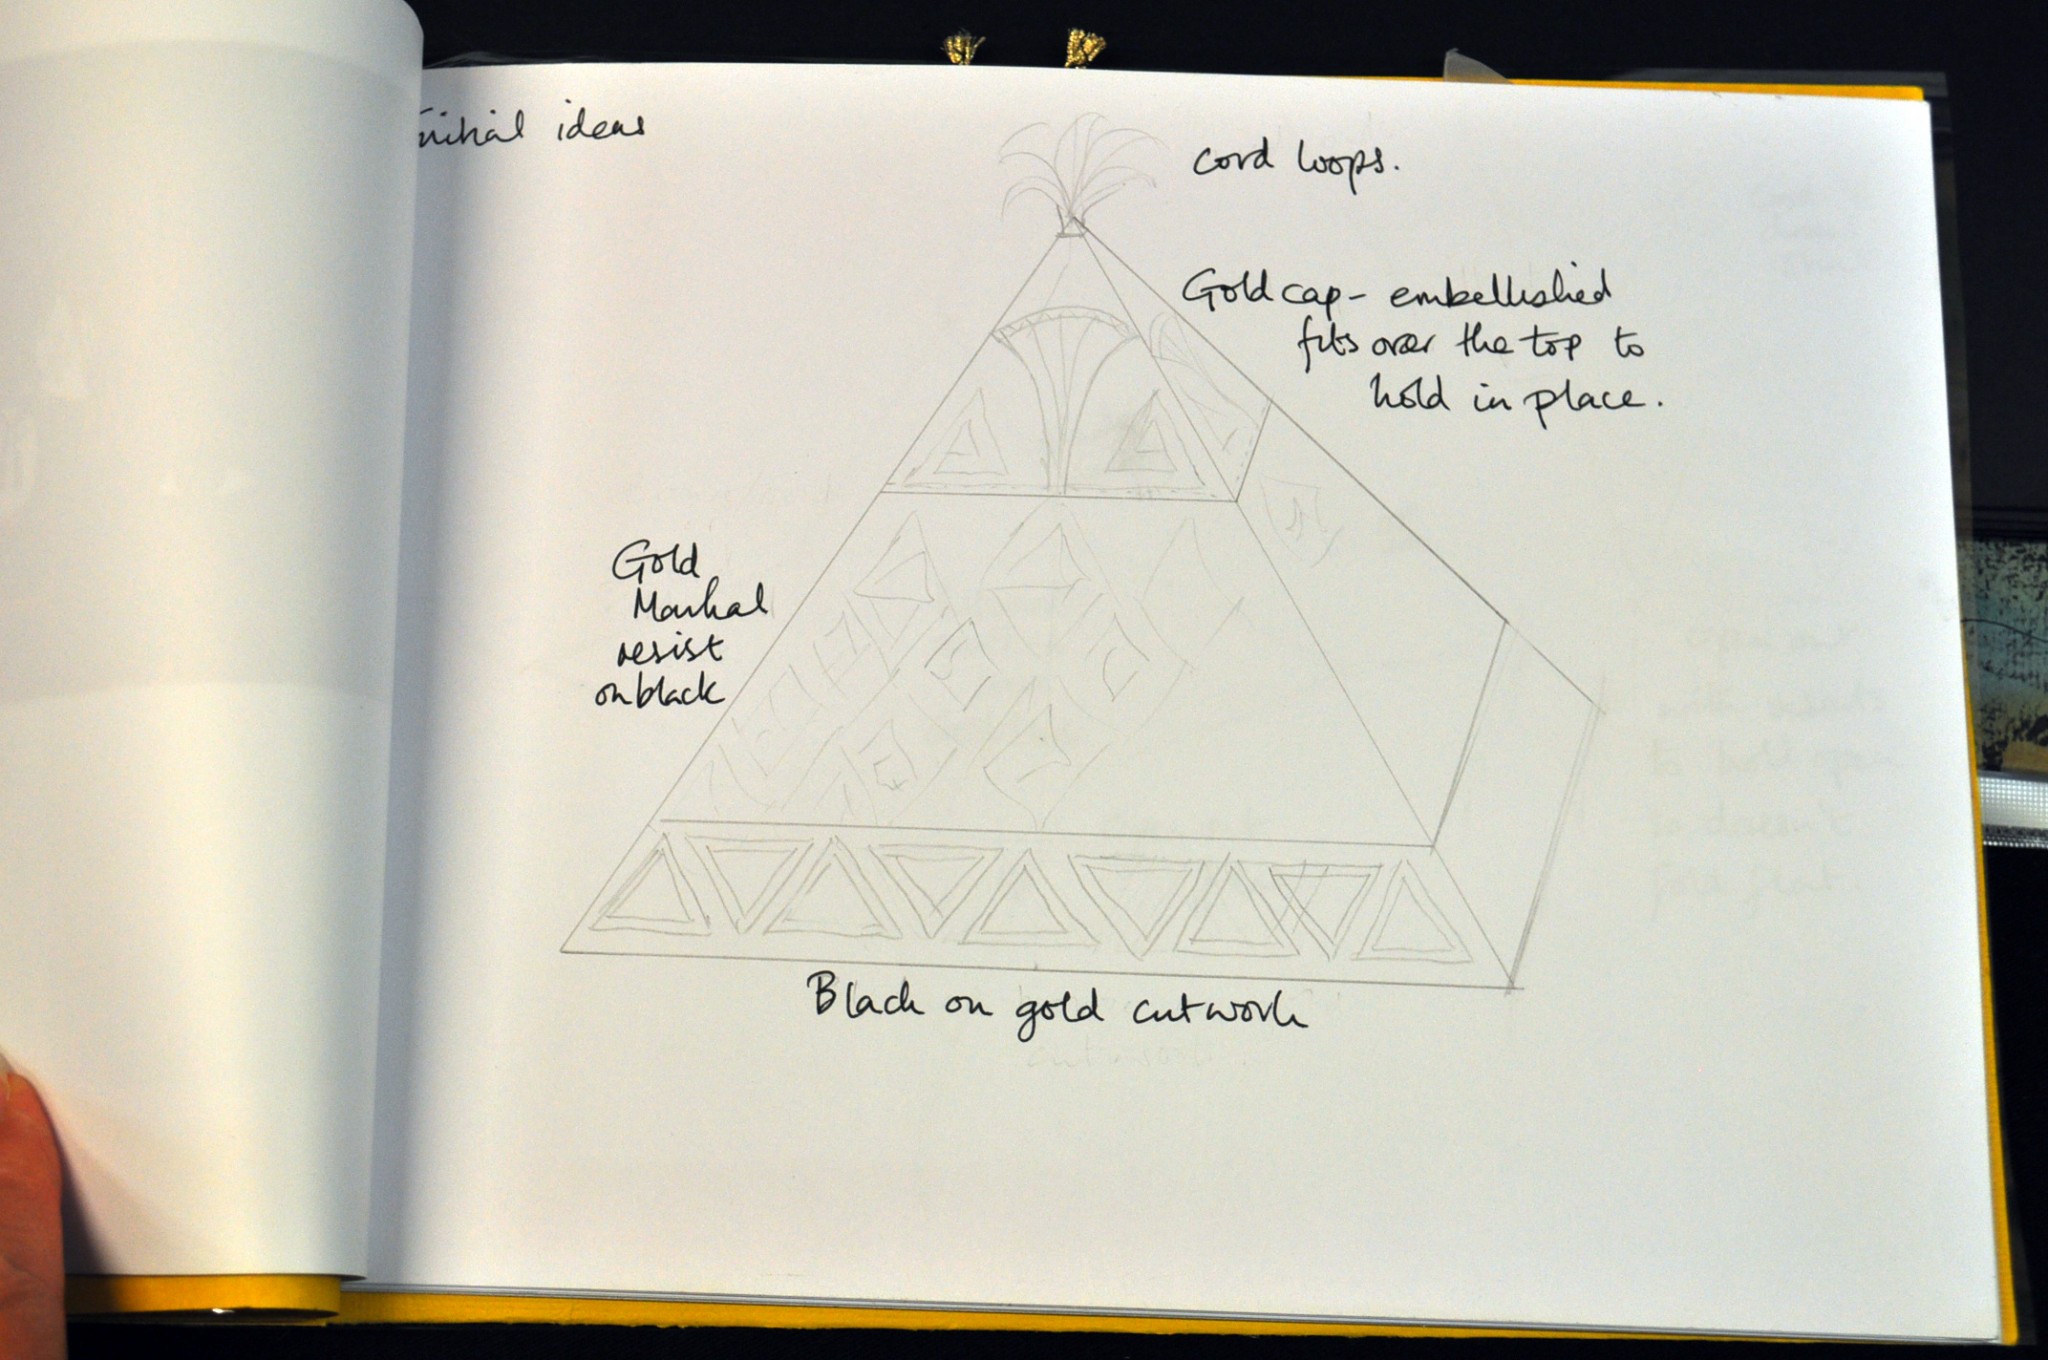 Initial ideas
cord loops.
Gold cap - embellished
fits over the top to
hold in place.
Gold
Markal
resist
on black
Black on gold cutwork